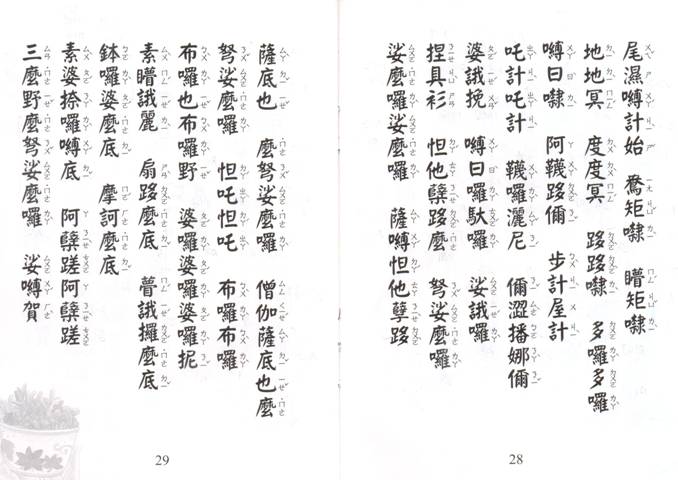 尾濕嚩計始 鴦矩㘑 瞻矩㘑
地地冥 度度冥 跢跢㘑 多囉多囉
嚩日㘑 阿韈跢儞 步計屋計
吒計吒計 韈囉灑尼 儞澀播娜儞
婆誐挽 嚩日囉馱囉 娑誐囉
捏具衫 怛他櫱跢麼 弩娑麼囉
娑麼囉娑麼囉 薩嚩怛他孽跢
28
薩底也 麼弩娑麼囉 僧伽薩底也麼
弩娑麼囉 怛吒怛吒 布囉布囉
布囉也布囉野 婆囉婆囉抳
素瞻誐麗 扇跢麼底 瞢誐攞麼底
鉢囉婆麼底 摩訶麼底
素婆捺囉嚩底 阿櫱蹉阿櫱蹉
三麼野麼弩娑麼囉 娑嚩賀
29